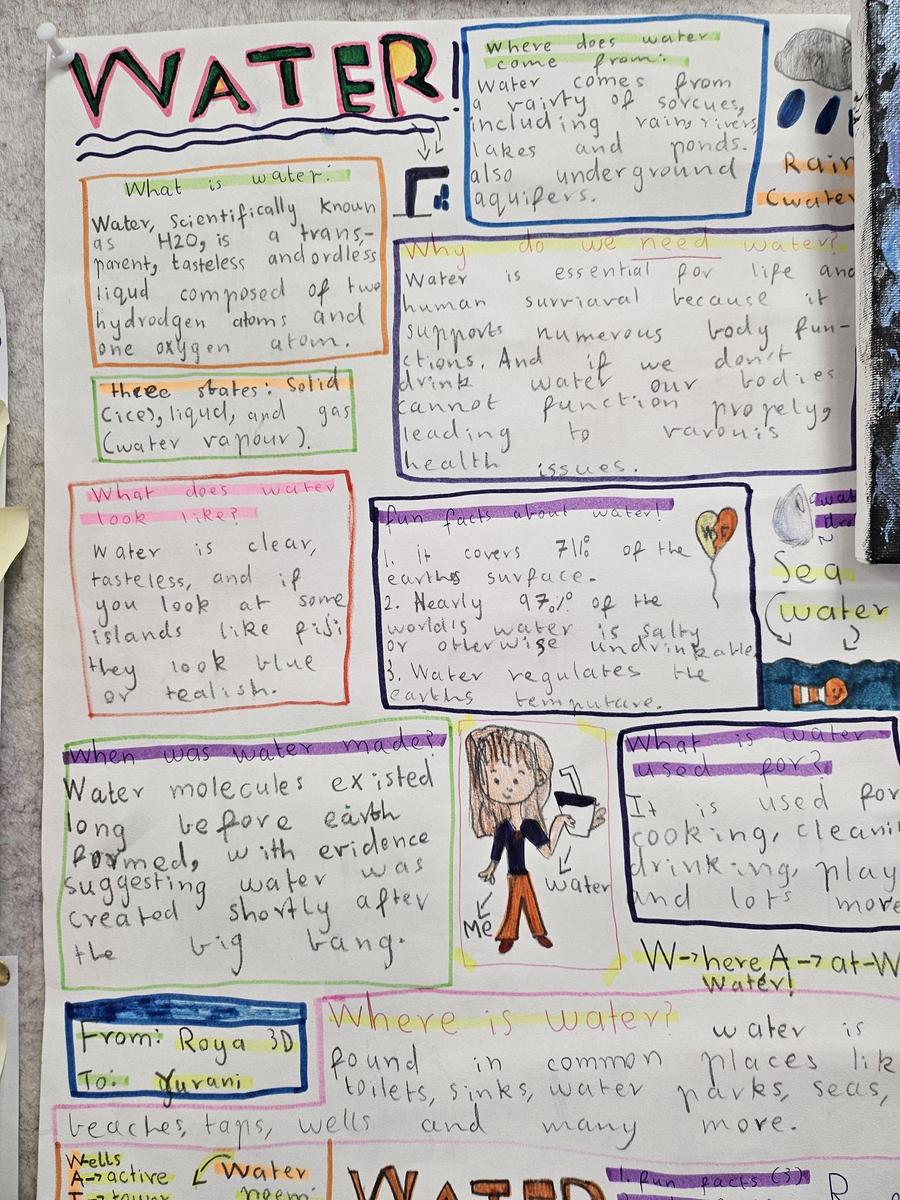 WATER!
Where does water
come from:
Water comes from
a vairty of sorcues,
including rain, rivers,
lakes and ponds.
also underground
aquifers.
Rain
(water
What is water:
Water, Scientifically known
as H2O, is a trans-
parent, tasteless and ordless
liqud composed of two
hydrodgen atoms and
one oxygen atom.
three states: Solid
(ice), liqud, and gas
(water vapour).
Why do we need water?
Water is essential for life and
human surviaval because it
supports numerous body fun-
ctions. And if we don't
drink water our bodies
cannot function propely,
leading to varouis
health issues.
What does water
look like?
water is clear,
tasteless, and if
you look at some
islands like fiji
they look blue
or tealish.
fun facts about water!
1. it covers 71% of the
earths surface.
2. Nearly 97% of the
world's water is salty
or otherwise undrinkable
3. Water regulates the
earths temputare.
W F
Sea
water
When was water made?
Water molecules existed
long before earth
formed, with evidence
suggesting water was
created shortly after
the big bang.
water
Me
What is water
used for?
It is used for
cooking, cleani
drinking, play
and lots more
W→here A→at-W
Water!
From: Roya 3D
To: Yurani
Where is water? water is
found in common places lik
toilets, sinks, water parks, seas,
beaches, taps, wells and many more.
Wells
A→active
Water
poem
WATER
1. fun facts (3)
R